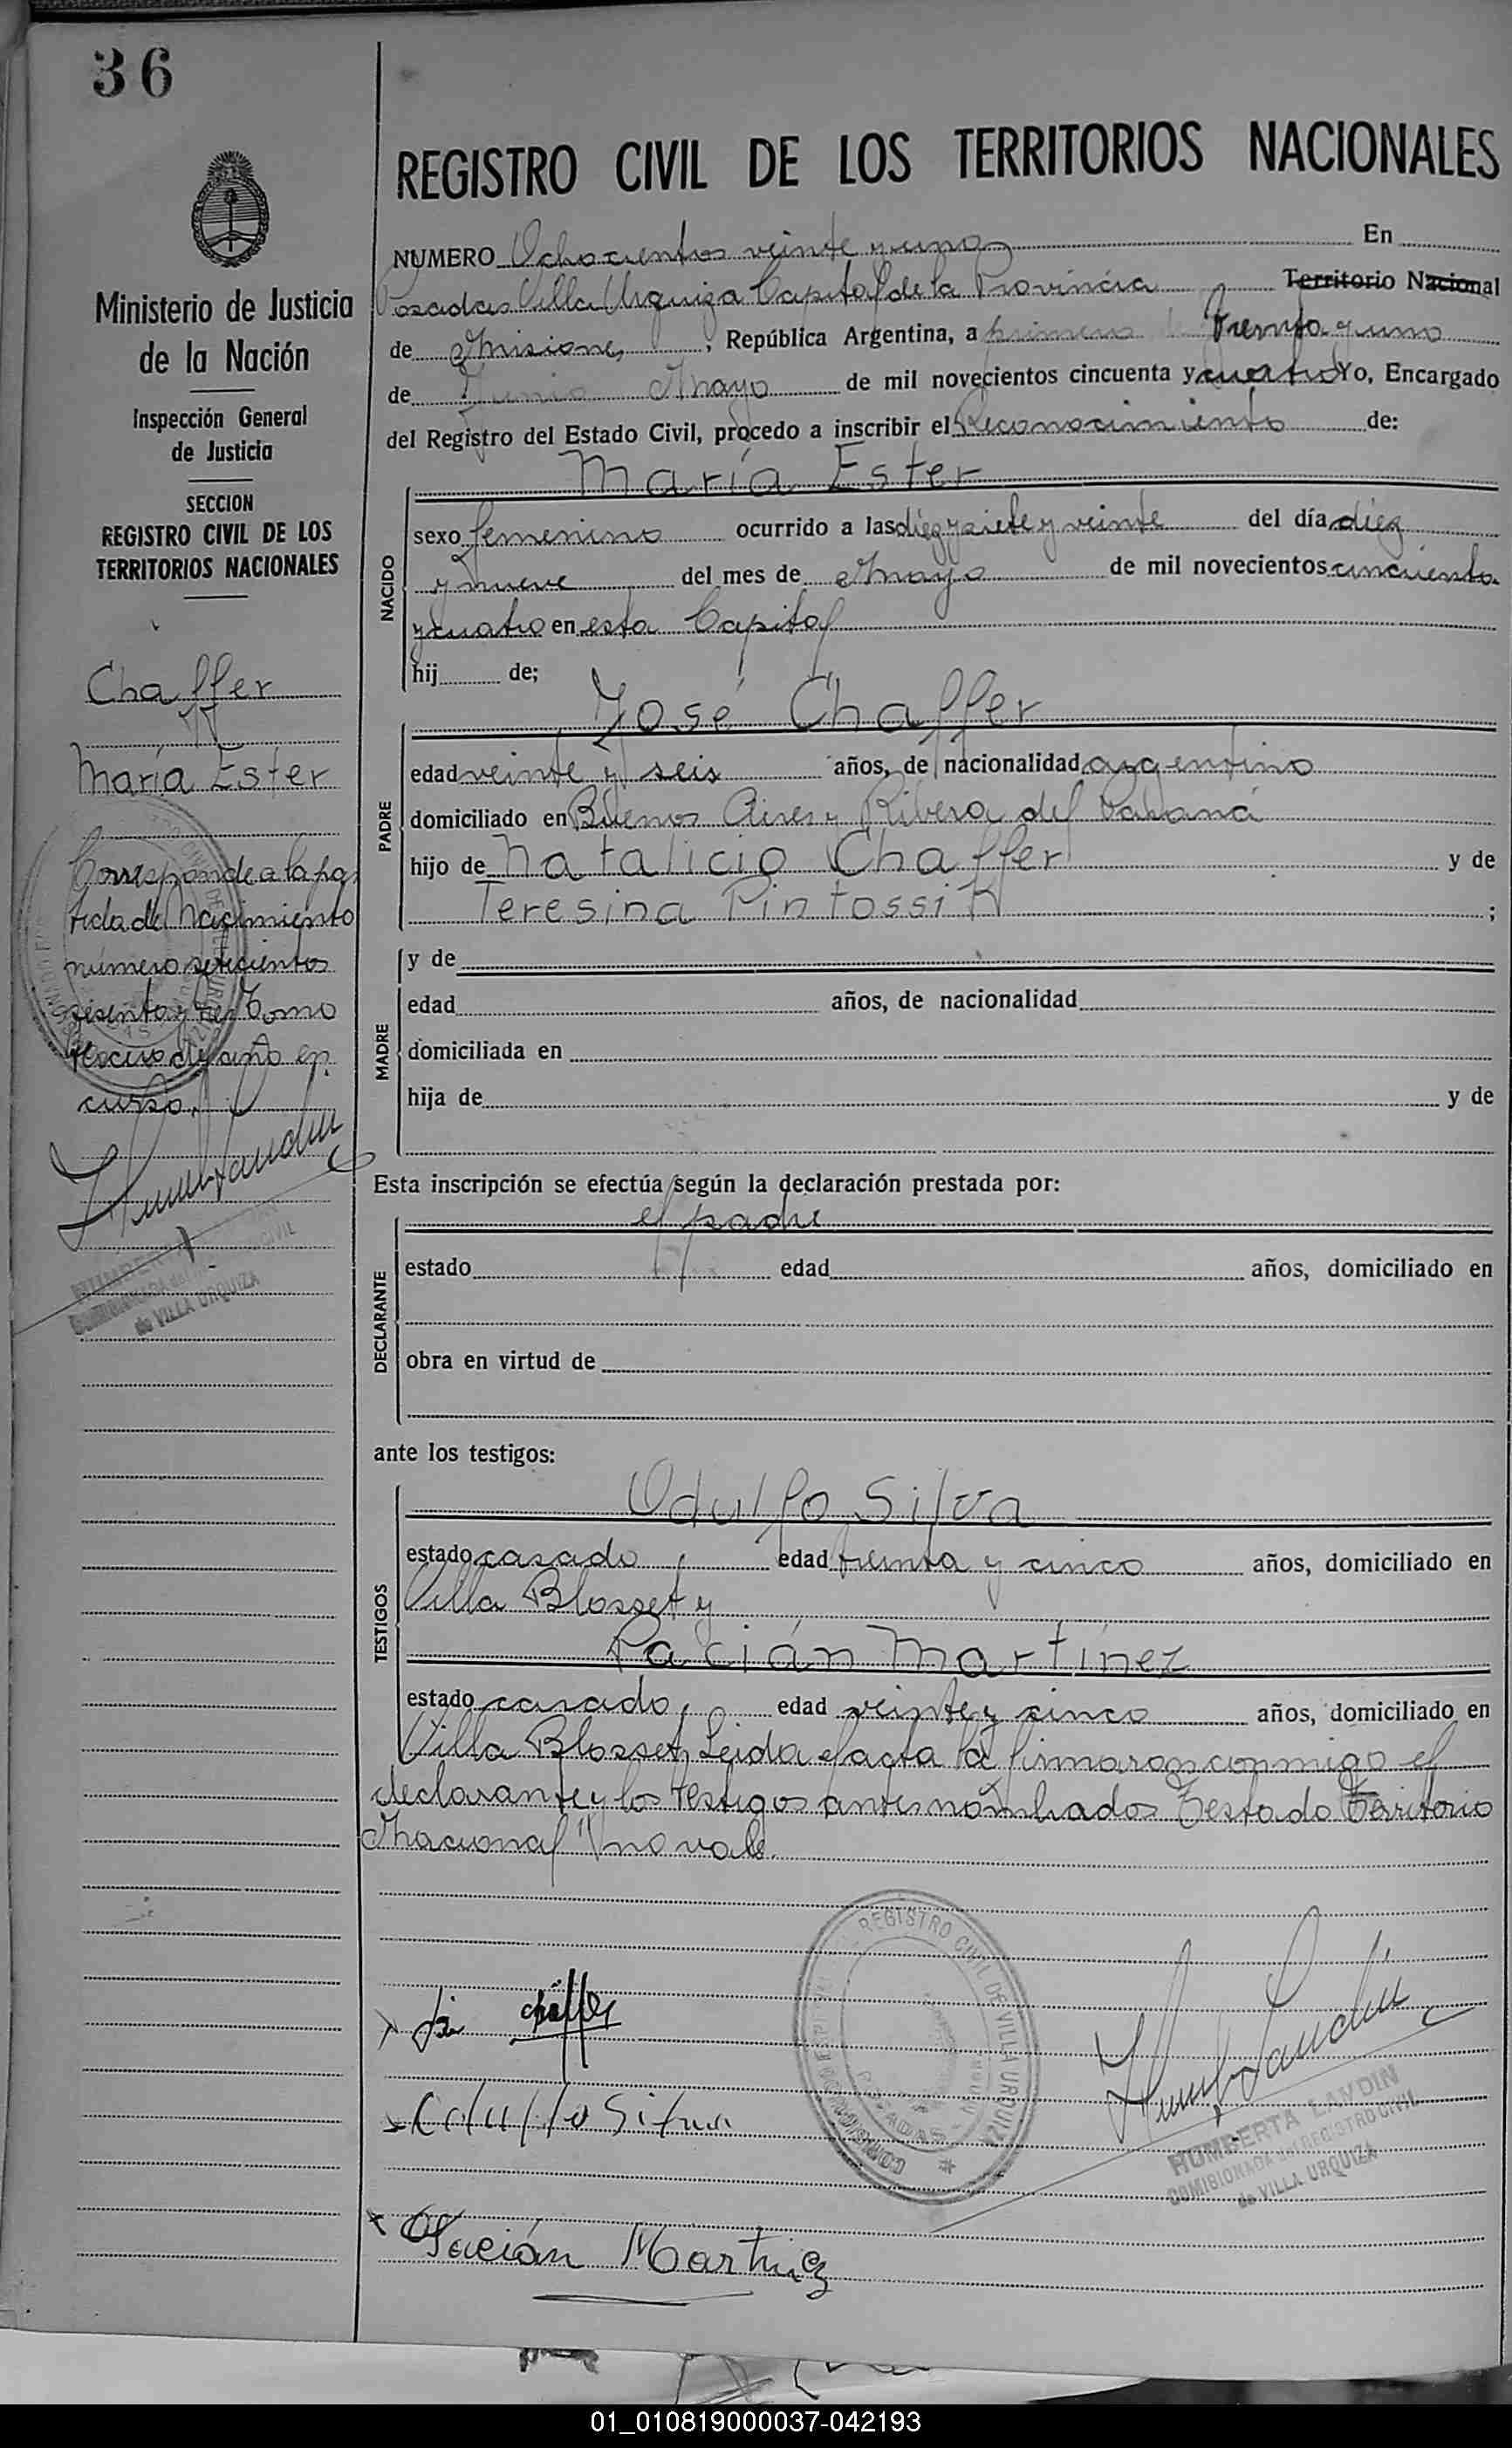 36
REGISTRO CIVIL DE LOS TERRITORIOS NACIONALES
Ministerio de Justicia
de la Nación
Inspección General
de Justicia
SECCION
REGISTRO CIVIL DE LOS
TERRITORIOS NACIONALES
Chaffer
María Ester
Corresponde a la par
tida de Nacimiento
número setecientos
sesenta y tres Tomo
del año en
curso.
de VILLA URQUIZA
NUMERO Ochocientos veinte y uno En
Posadas Villa Urquiza Capital de la Provincia Territorio Nacional
de Misiones, República Argentina, a primero treinta y uno
de Junio Mayo de mil novecientos cincuenta y cuatro Yo, Encargado
del Registro del Estado Civil, procedo a inscribir el Reconocimiento de:
NACIDO
María Ester
sexo femenino ocurrido a las diez y siete y veinte del día diez
y nueve del mes de Mayo de mil novecientos cincuenta
y cuatro en esta Capital
hij de;
PADRE
José Chaffer
edad veinte y seis años, de nacionalidad argentino
domiciliado en Buenos Aires y Ribera del Paraná
hijo de Natalicio Chaffer y de
Teresina Pintossi ;
MADRE
y de
edad años, de nacionalidad
domiciliada en
hija de y de
Esta inscripción se efectúa según la declaración prestada por:
DECLARANTE
el padre
estado edad años, domiciliado en
obra en virtud de
ante los testigos:
TESTIGOS
Odulfo Silva
estado casado, edad treinta y cinco años, domiciliado en
Villa Blosset y
Pacián Martínez
estado casado, edad veinte y cinco años, domiciliado en
Villa Blosset, Leida el acta la firmaron conmigo el
declarante y los testigos antes nombrados Testado Territorio
Nacional" no vale.
REGISTRO CIVIL DE VILLA URQUIZA
POSADAS
Chaffer
Odulfo Silva
Pacián Martinez
HUMBERTA LANDIN
COMISIONADA del REGISTRO CIVIL
de VILLA URQUIZA
01_010819000037-042193